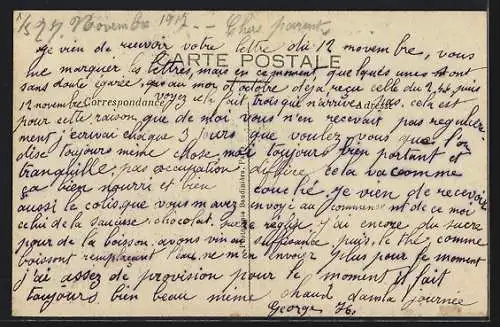 27 Novembre 1917. - Chers parents
je viens de recevoir votre lettre du 12 novembre, vous
me marquer les lettres, mais en ce moment, quelques unes sont
CARTE POSTALE
sans doute égarée, au mois d'octobre déjà reçu celle du 2, puis
12 novembre voyez cela fait trois qui n'arrive pas. cela est
Correspondance
Adresse
pour cette raison, que de moi vous n'en recevait pas regulière
ment j'ecrivai chaque 3 jours que voulez vous que l'on
dise toujours même chose, moi toujours bien portant et
tranquille, pas occupation, cela va comme
ça bien nourri et bien couché. je viens de recevoir
aussi le colis que vous m'avez envoyé au commencement de ce moi
celui de la saucisse, chocolat, réglisse. j'ai encore du sucre
pour de la boisson. avons vin en suffisance, puis le thé comme
boisson remplaçant l'eau, ne m'en envoyer plus pour le moment
j'ai assez de provision pour le moment il fait
toujours bien beau même chaud dans la journée
George